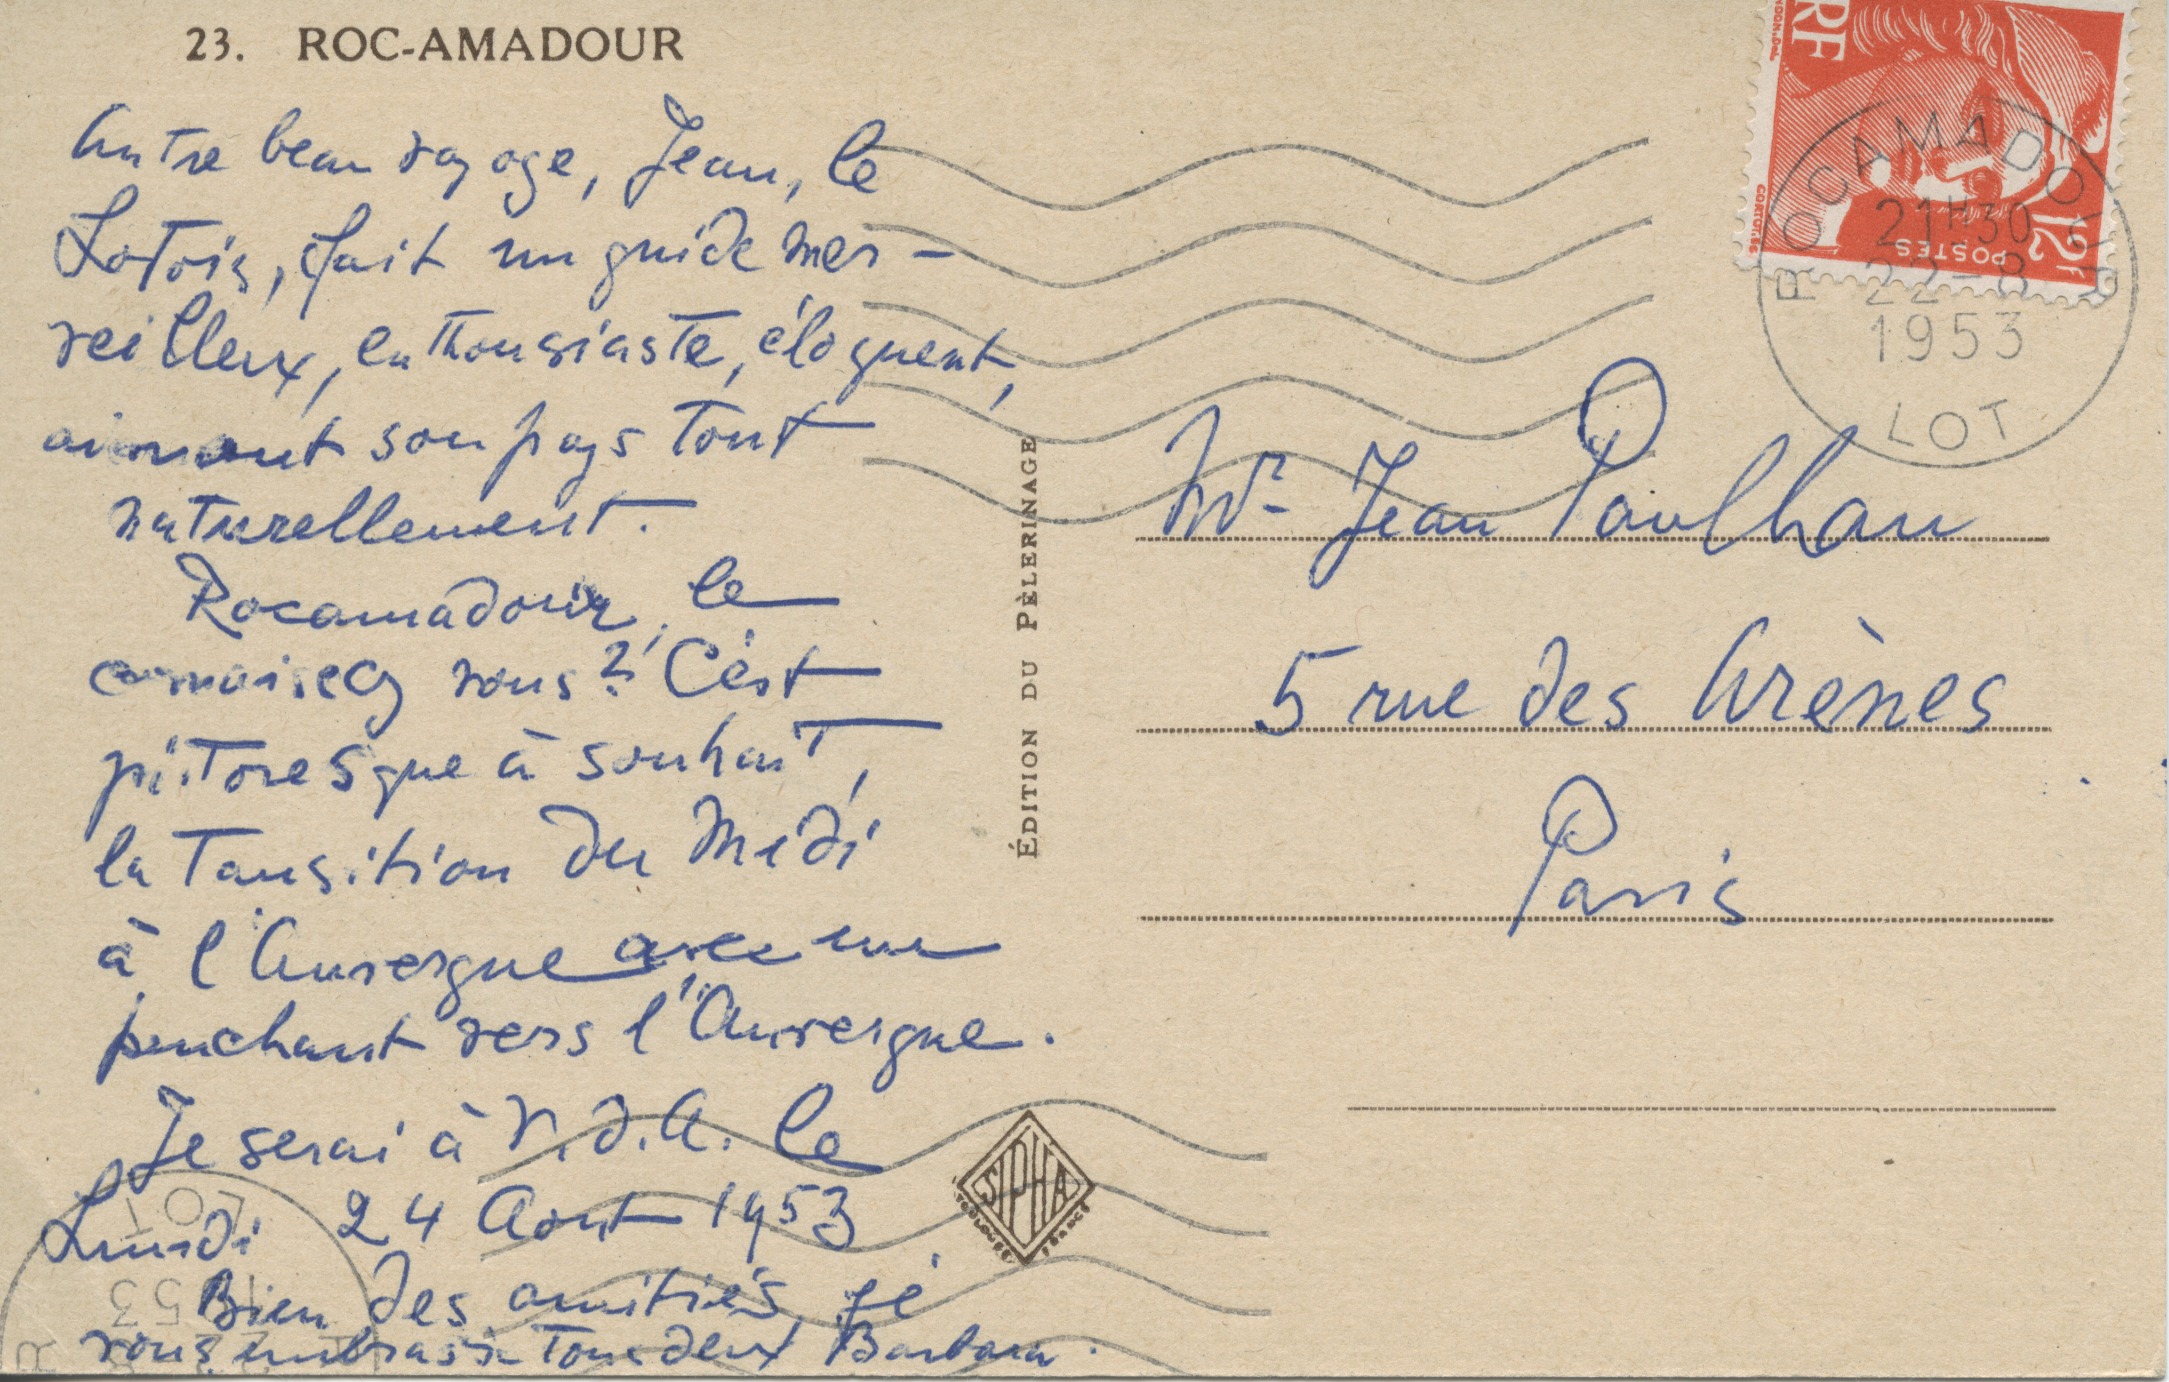 23. ROC-AMADOUR
Autre beau voyage, Jean, le
Lotois, fait un guide mer-
veilleux, enthousiaste, éloquent,
aimant son pays tout
naturellement.
Rocamadour, le
connaisez vous? C'est
pittoresque à souhait,
la Tansition du Midi
à l'Auvergne avec un
penchant vers l'Auvergne.
Je serai à V.d.A. le
Lundi 24 Aout 1953
Bien des amitiés je
vous embrasse Tous deux Barbara.
ÉDITION DU PÈLERINAGE
SIPHA
TOULOUSE FRANCE
RF
POSTES
12f
CORTOT
ROCAMADOUR
21H30
22-8
1953
LOT
Mr Jean Paulhan
5 rue des Arènes
Paris
LOT
53